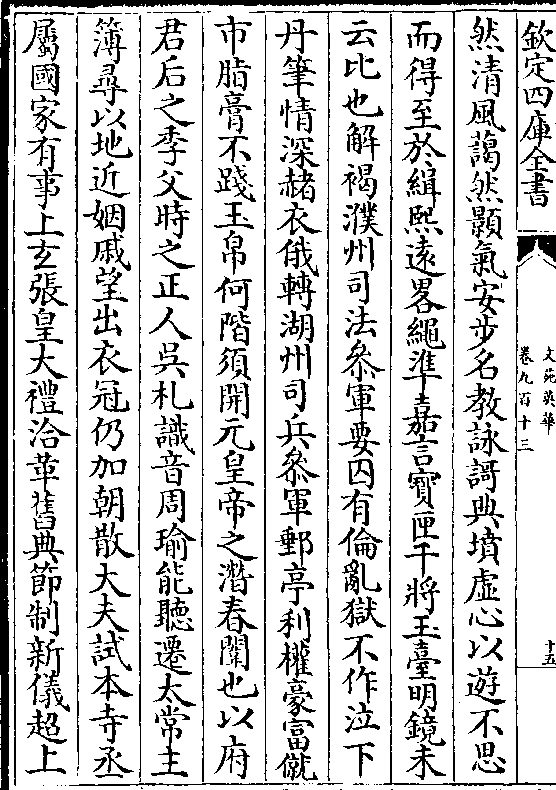 欽定四庫全書
文苑英華
卷九百十三
十五
然清風藹然顥氣安步名教詠謌典墳虛心以遊不思
而得至於緝熙遠畧繩準嘉言寳匣干將玉臺明鏡未
云比也解褐濮州司法叅軍要囚有倫亂獄不作泣下
丹筆情深赭衣俄轉湖州司兵叅軍郵亭利權豪富僦
市脂膏不踐玉帛何階須開元皇帝之潛春闈也以府
君后之季父時之正人吳札識音周瑜能聽遷太常主
簿尋以地近姻戚望出衣冠仍加朝散大夫試本寺丞
屬國家有事上𤣥張皇大禮洽革舊典節制新儀超上